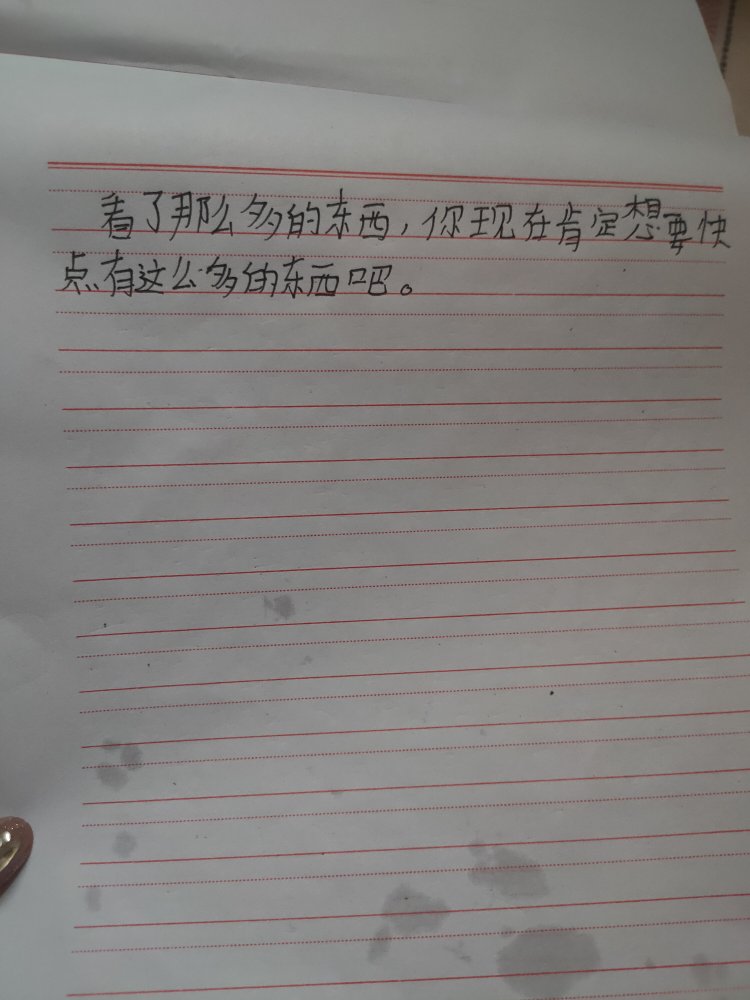 看了那么多的东西，你现在肯定想要快
点有这么多的东西吧。